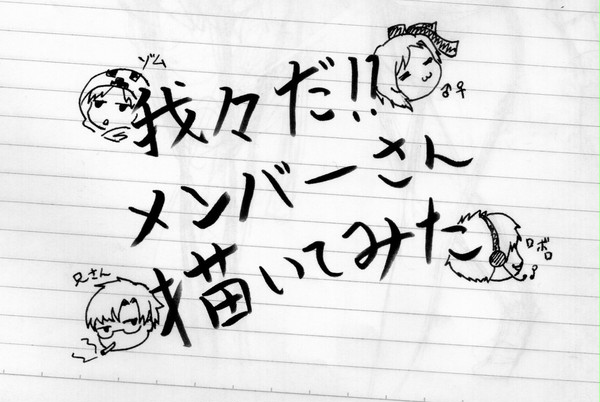 ゾム
我々だ!!
♂♀
メンバーさん
ロボロ
兄さん
描いてみた